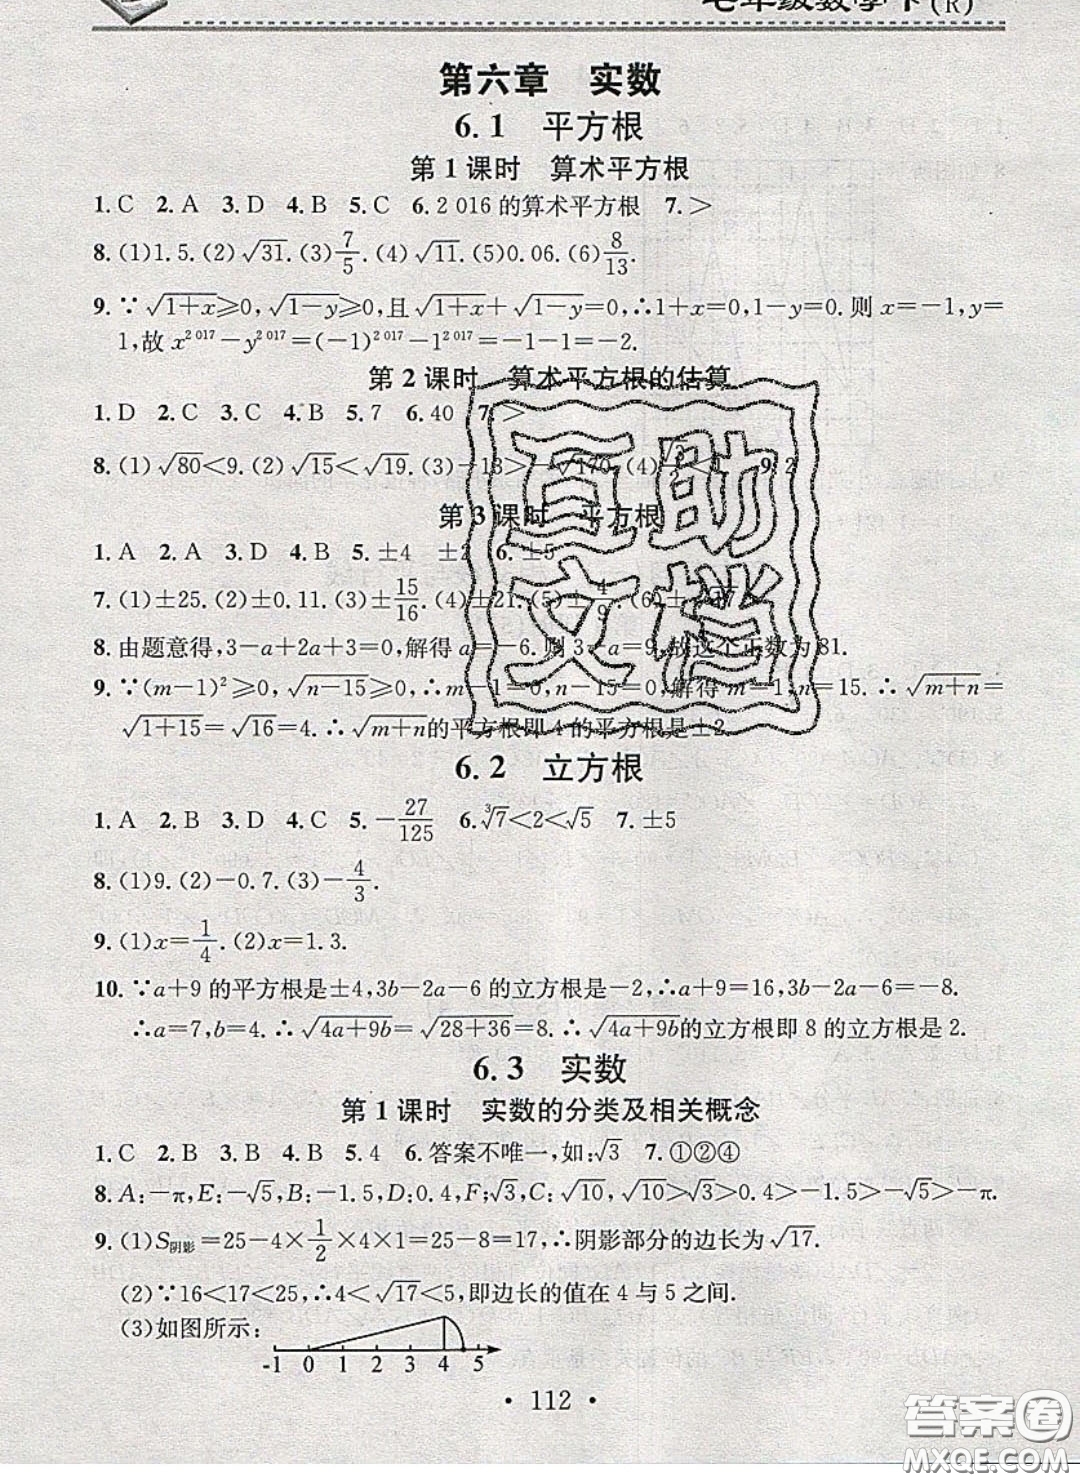 七年级数学下(R)
第六章 实数
6.1 平方根
第1课时 算术平方根
1.C 2.A 3.D 4.B 5.C 6.2 016的算术平方根 7.>
8.(1)1.5.(2)√31.(3)7/5.(4)√11.(5)0.06.(6)8/13.
9.∵√(1+x)≥0,√(1-y)≥0,且√(1+x)+√(1-y)=0,∴1+x=0,1-y=0.则x=-1,y=
1,故x^2 017-y^2 017=(-1)^2 017-1^2 017=-1-1=-2.
第2课时 算术平方根的估算
1.D 2.C 3.C 4.B 5.7 6.40 7.>
8.(1)√80<9.(2)√15<√19.(3)-13>-√170.(4) <1. 9.2
第3课时 平方根
1.A 2.A 3.D 4.D 5.±4 ±2 6.±5
7.(1)±25.(2)±0.11.(3)±15/16.(4)±21.(5)±4/9.(6)±√17.
8.由题意得,3-a+2a+3=0,解得a=-6.则3-a=9,故这个正数为81.
9.∵(m-1)²≥0,√(n-15)≥0,∴m-1=0,n-15=0,解得m=1,n=15.∴√(m+n)=
√(1+15)=√16=4.∴√(m+n)的平方根即4的平方根是±2.
互助
文档
6.2 立方根
1.A 2.B 3.D 4.C 5.-27/125 6.∛7<2<√5 7.±5
8.(1)9.(2)-0.7.(3)-4/3.
9.(1)x=1/4.(2)x=1.3.
10.∵a+9的平方根是±4,3b-2a-6的立方根是-2,∴a+9=16,3b-2a-6=-8.
∴a=7,b=4.∴√(4a+9b)=√(28+36)=8.∴√(4a+9b)的立方根即8的立方根是2.
6.3 实数
第1课时 实数的分类及相关概念
1.C 2.B 3.B 4.B 5.4 6.答案不唯一,如:√3 7.①②④
8.A:-π,E:-√5,B:-1.5,D:0.4,F:√3,C:√10,√10>√3>0.4>-1.5>-√5>-π.
9.(1)S阴影=25-4×1/2×4×1=25-8=17,∴阴影部分的边长为√17.
(2)∵16<17<25,∴4<√17<5,即边长的值在4与5之间.
(3)如图所示:
-1 0 1 2 3 4 5
· 112 ·
答案圈
MXQE.COM